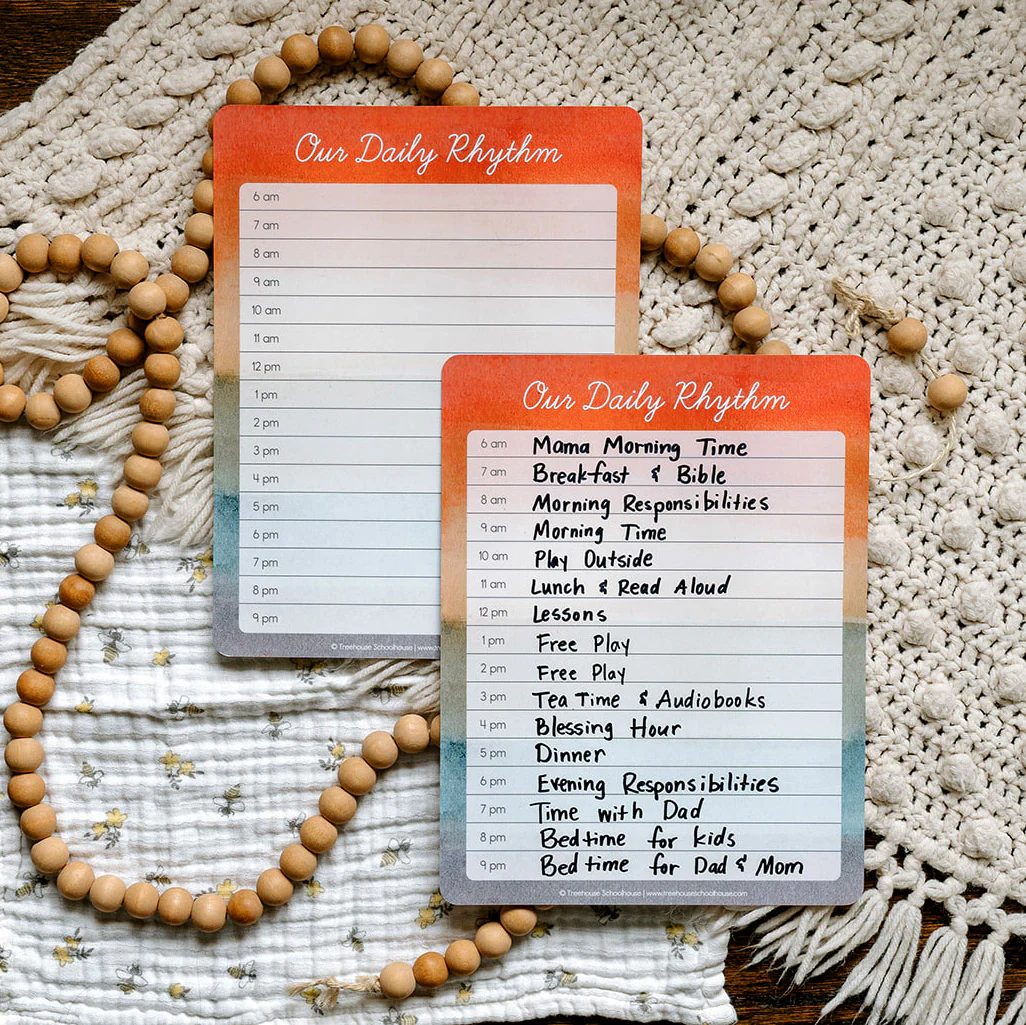 Our Daily Rhythm
6 am
7 am
8 am
9 am
10 am
11 am
12 pm
1 pm
2 pm
3 pm
4 pm
5 pm
6 pm
7 pm
8 pm
9 pm
© Treehouse Schoolhouse |
Our Daily Rhythm
6 am Mama Morning Time
7 am Breakfast & Bible
8 am Morning Responsibilities
9 am Morning Time
10 am Play Outside
11 am Lunch & Read Aloud
12 pm Lessons
1 pm Free Play
2 pm Free Play
3 pm Tea Time & Audiobooks
4 pm Blessing Hour
5 pm Dinner
6 pm Evening Responsibilities
7 pm Time with Dad
8 pm Bedtime for kids
9 pm Bedtime for Dad & Mom
© Treehouse Schoolhouse | www.treehouseschoolhouse.com